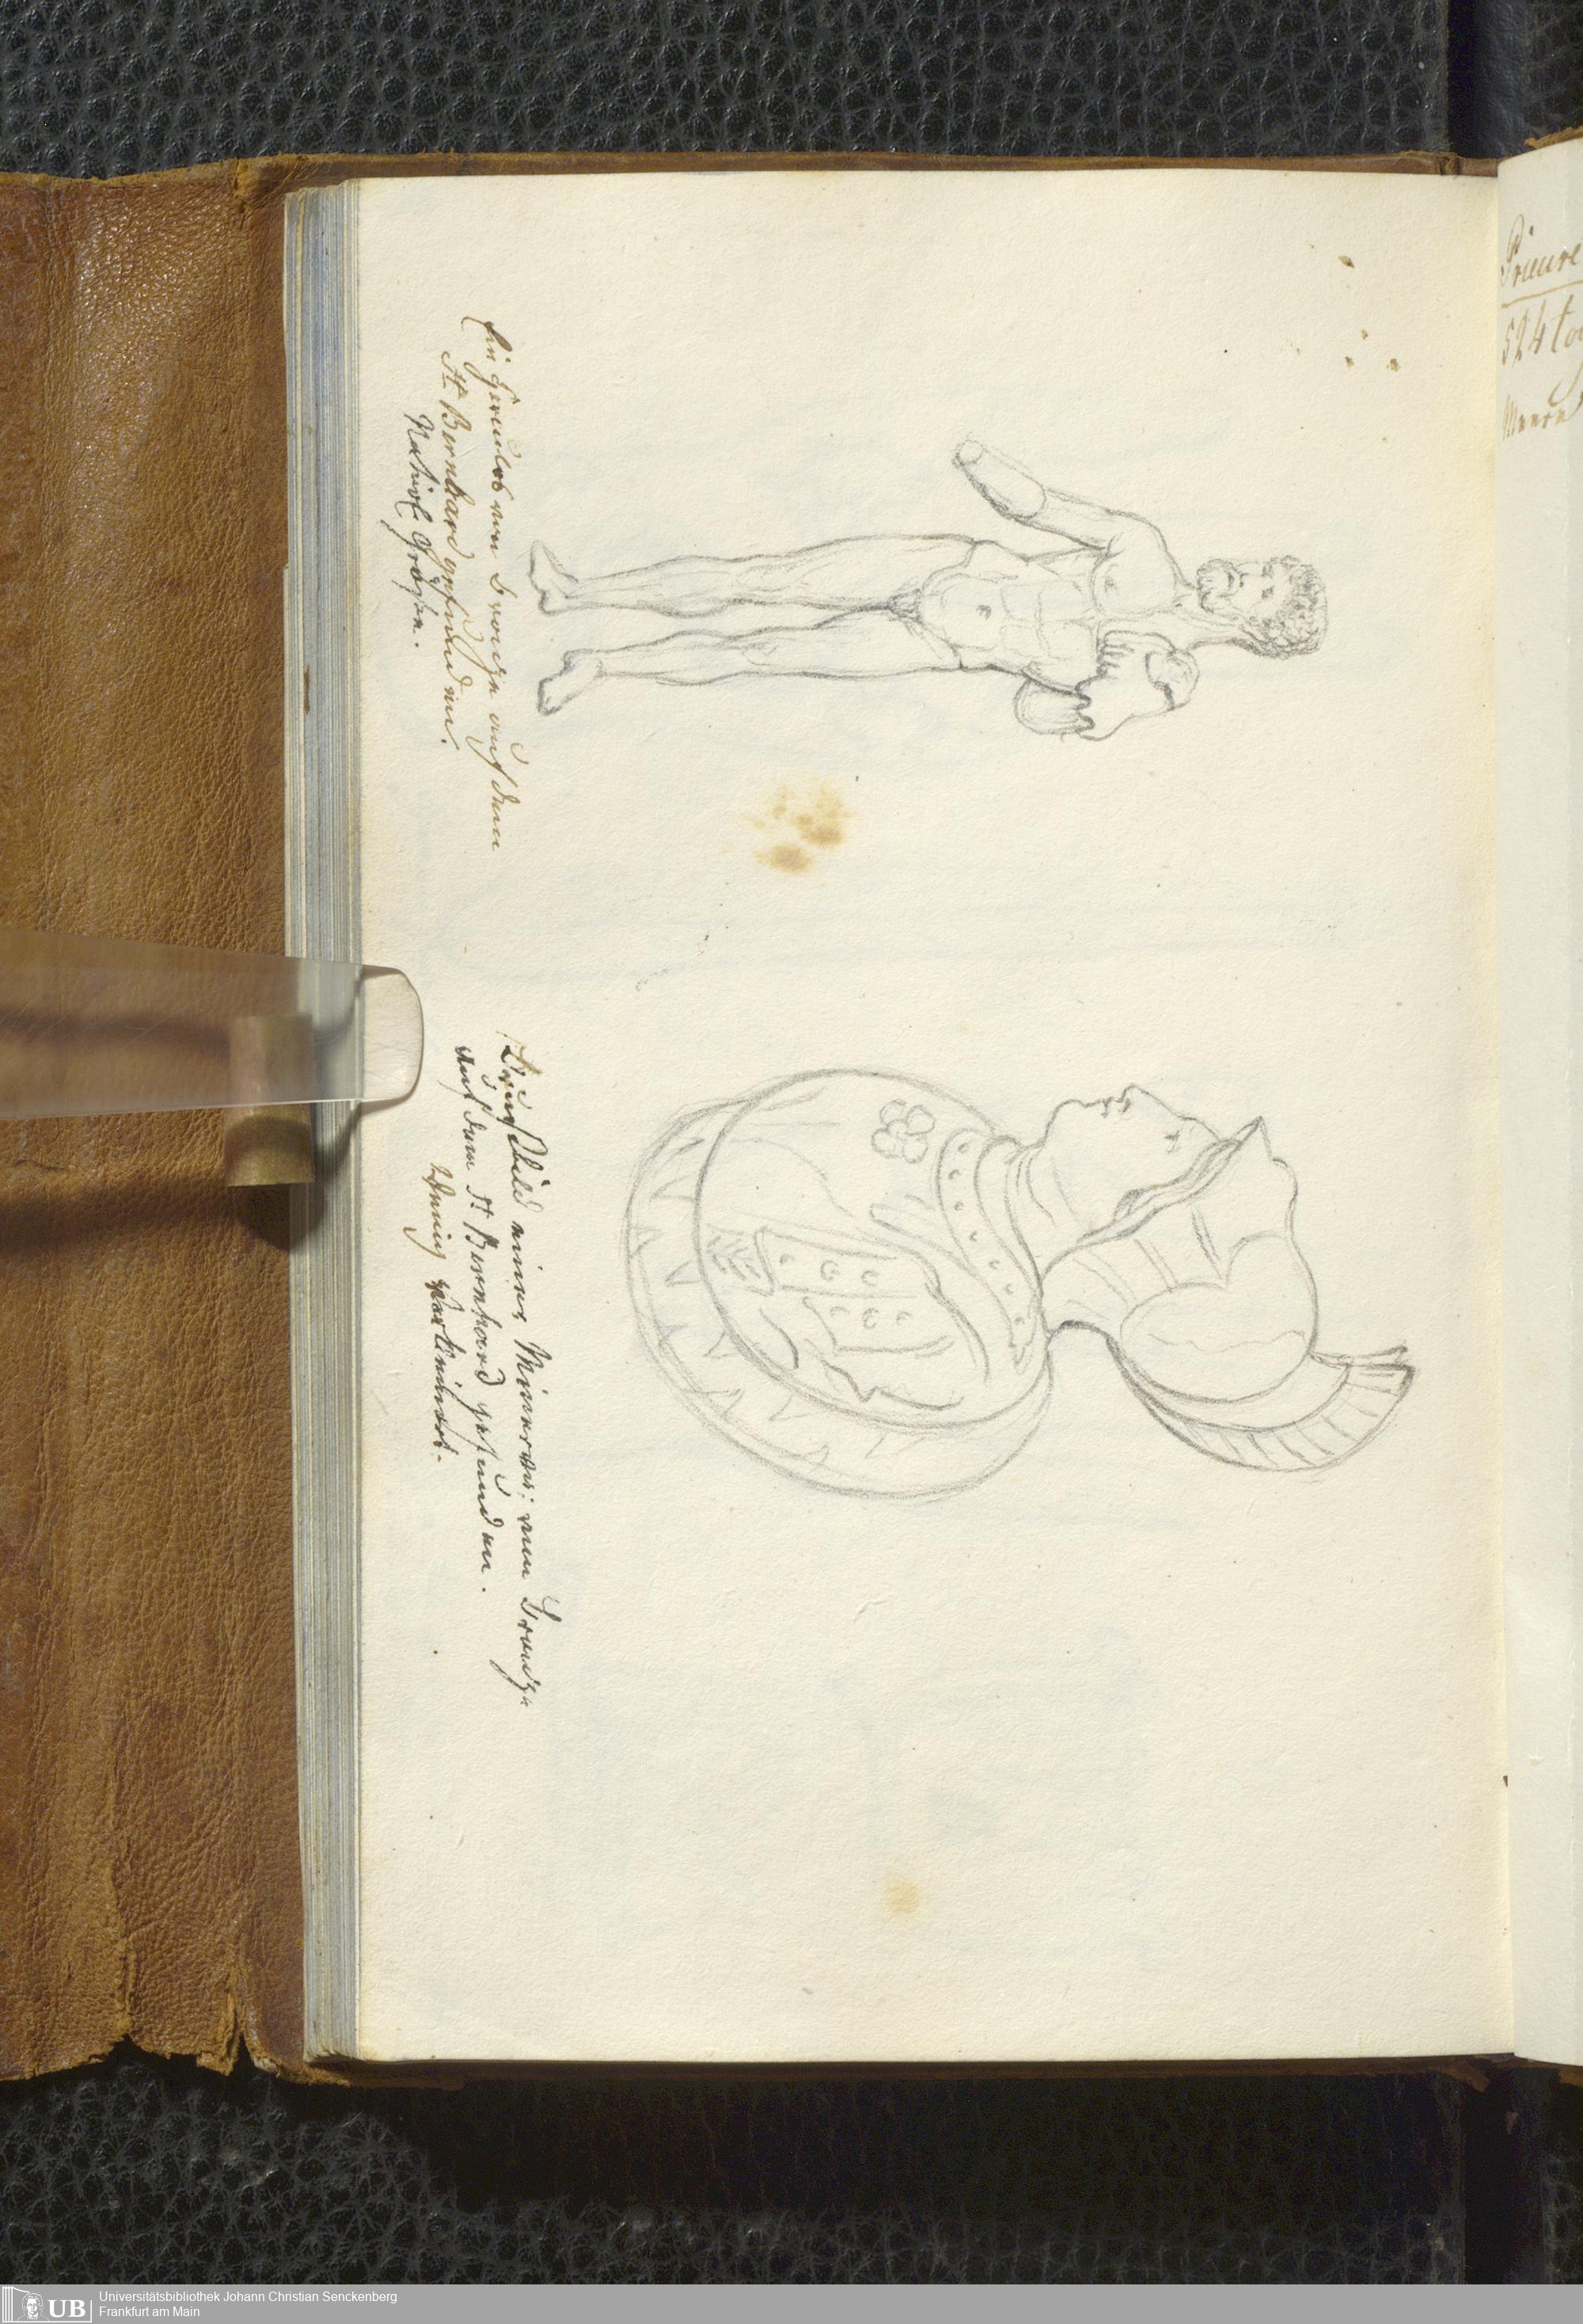 Ein Hercules von Bronze auf dem
St Bernhard gefunden.
Natürl. Grösse.
Brustbild einer Minerva; von Bronze
auf dem St Bernhard gefunden.
Wenig verkleinert.
Prieure
524 to
UB
Universitätsbibliothek Johann Christian Senckenberg
Frankfurt am Main